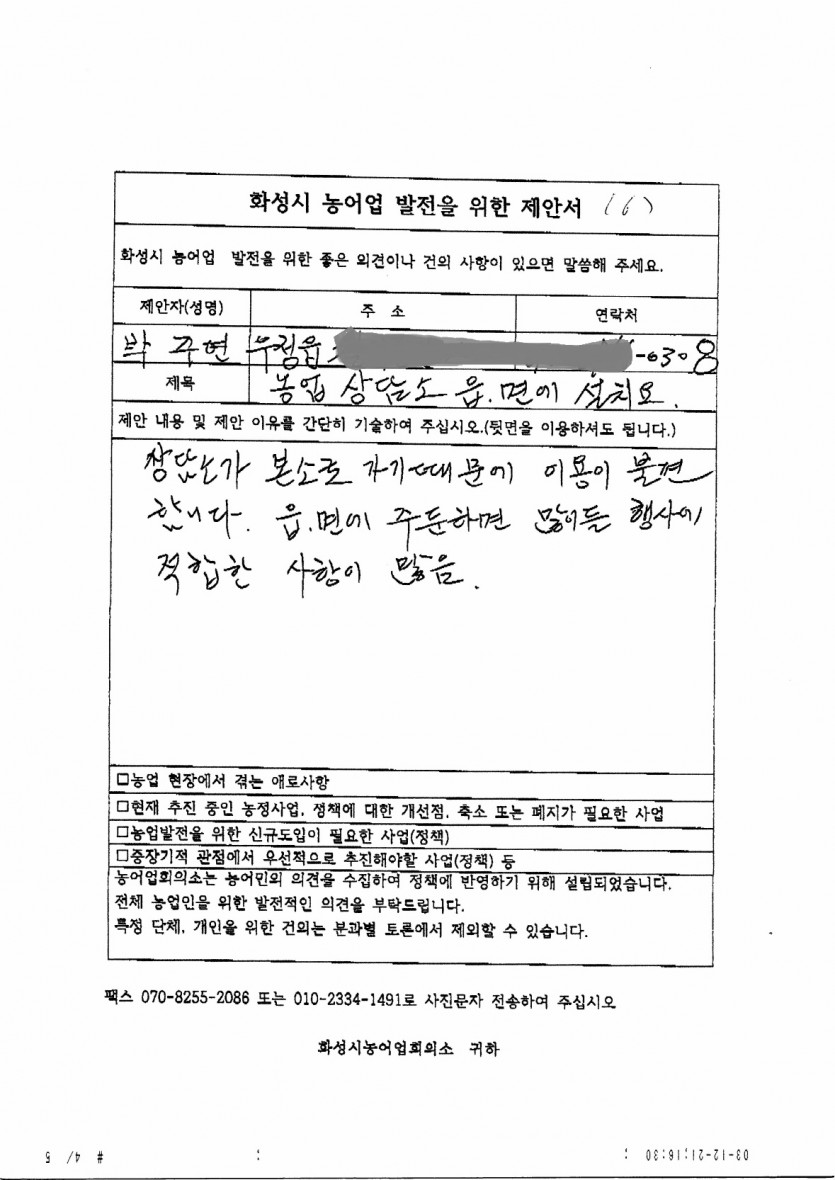 화성시 농어업 발전을 위한 제안서 (6)
화성시 농어업 발전을 위한 좋은 의견이나 건의 사항이 있으면 말씀해 주세요.
제안자(성명) 주 소 연락처
박주현 우정읍 -0308
제목 농업 상담소 읍.면에 설치요.
제안 내용 및 제안 이유를 간단히 기술하여 주십시오.(뒷면을 이용하셔도 됩니다.)
상담소가 본소로 가기때문에 이용이 불편
합니다. 읍.면에 주둔하면 행사에
적합한 사항이 많음.
□농업 현장에서 겪는 애로사항
□현재 추진 중인 농정사업, 정책에 대한 개선점, 축소 또는 폐지가 필요한 사업
□농업발전을 위한 신규도입이 필요한 사업(정책)
□중장기적 관점에서 우선적으로 추진해야할 사업(정책) 등
농어업회의소는 농어민의 의견을 수집하여 정책에 반영하기 위해 설립되었습니다.
전체 농업인을 위한 발전적인 의견을 부탁드립니다.
특정 단체, 개인을 위한 건의는 분과별 토론에서 제외할 수 있습니다.
팩스 070-8255-2086 또는 010-2334-1491로 사진문자 전송하여 주십시오
화성시농어업회의소 귀하
03-12-21;16:30 ;
;
# 4/ 5